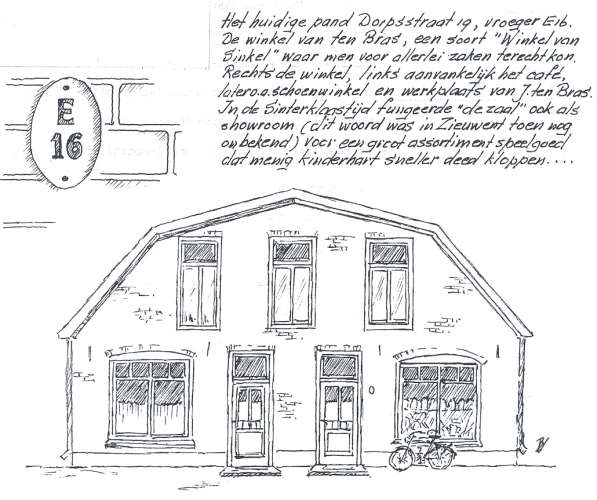 Het huidige pand Dorpsstraat 19, vroeger E16.
De winkel van ten Bras, een soort "Winkel van
Sinkel" waar men voor allerlei zaken terecht kon.
Rechts de winkel, links aanvankelijk het café,
later o.a. schoenwinkel en werkplaats van J. ten Bras.
In de Sinterklaastijd fungeerde "de zaal" ook als
showroom (dit woord was in Zieuwent toen nog
onbekend) voor een groot assortiment speelgoed
dat menig kinderhart sneller deed kloppen....
E
16